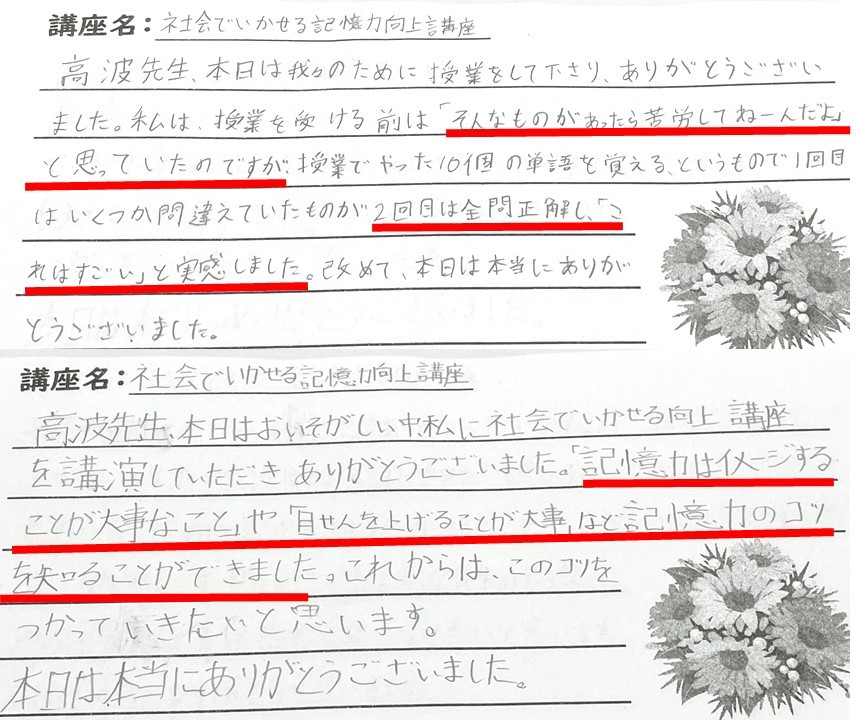 講座名：社会でいかせる記憶力向上講座
高波先生、本日は我々のために授業をして下さり、ありがとうござい
ました。私は、授業を受ける前は「そんなものがあったら苦労してねーんだよ」
と思っていたのですが、授業でやった10個の単語を覚える、というもので1回目
はいくつか間違えていたものが2回目は全問正解し、「こ
れはすごい」と実感しました。改めて、本日は本当にありが
とうございました。
講座名：社会でいかせる記憶力向上講座
高波先生、本日はおいそがしい中、私に社会でいかせる向上講座
を講演していただきありがとうございました。「記憶力はイメージする
ことが大事なこと」や「目せんを上げることが大事」など記憶力のコツ
を知ることができました。これからは、このコツを
つかっていきたいと思います。
本日は本当にありがとうございました。